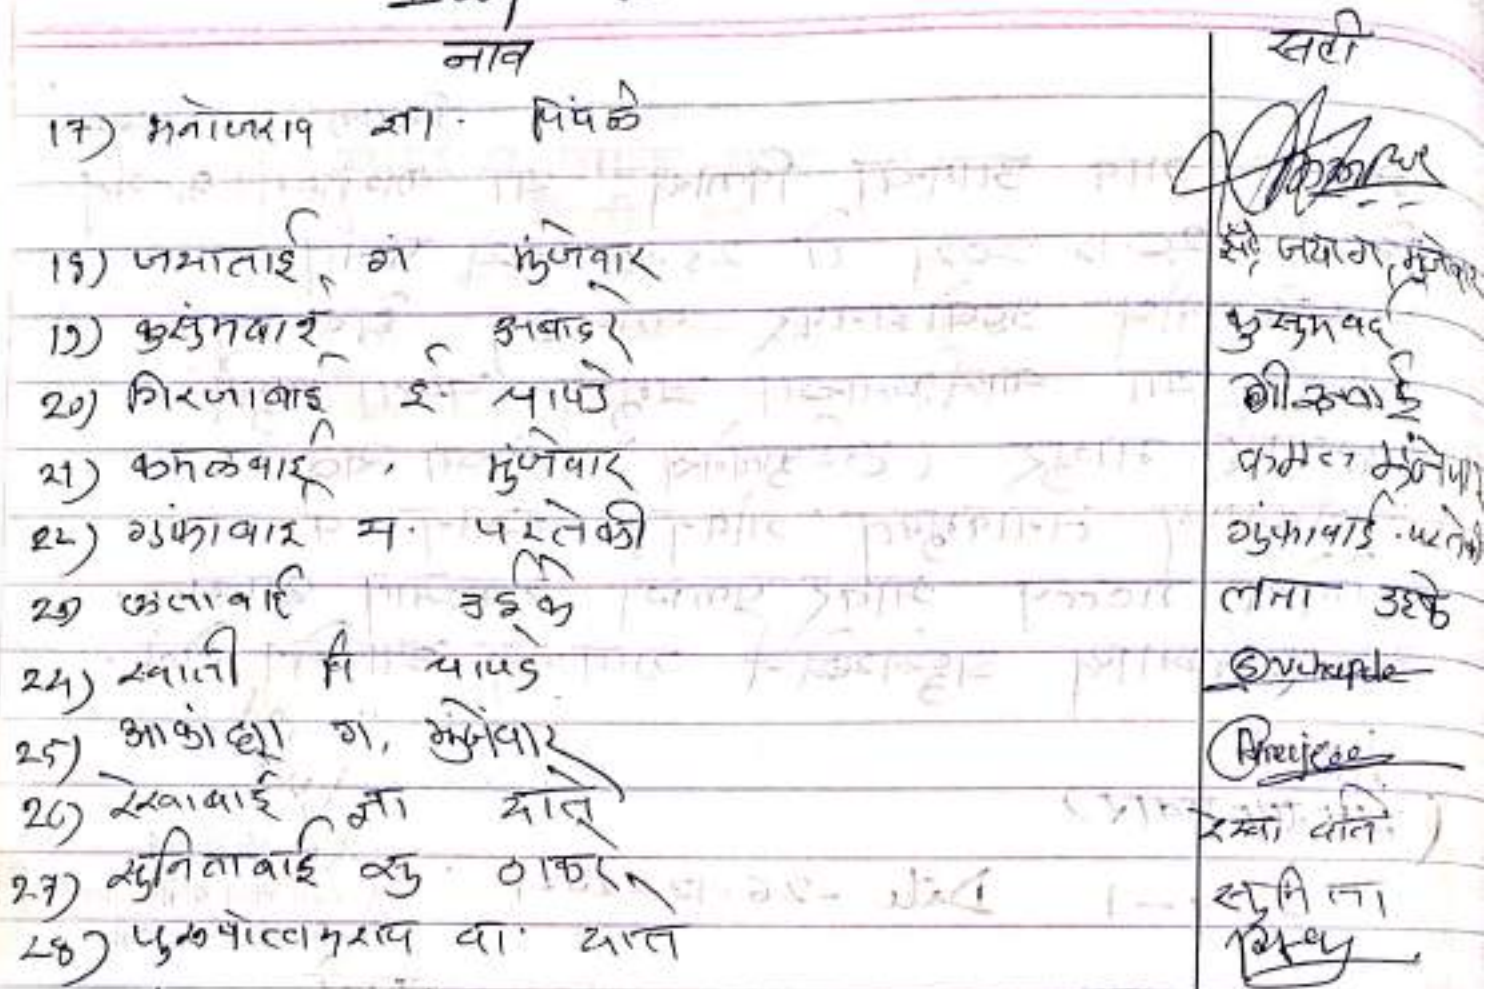 नाव सही
17) मनोजराव ज्ञा. पिंपळे
18) जयाताई गं मुंजेवार जया ग, मुंजेवार
19) कुसुमबाई कुसुमबाई
20) गिरजाबाई ई. चापडे
21) कमळबाई . मुंजेवार कमल मुंजेवार
22) गुंफाबाई म. परतेकी गुंफाबाई . परतेकी
23) लताबाई उईके लता उइके
24) स्वाती वि चापडे
25) आकांक्षा गं. मुंजेवार
26) रेखाबाई ज्ञा याते रेखा याते
27) सुनिताबाई सु ठाकरे सुनिता
28) पुरुषोत्तमराव वा. याते